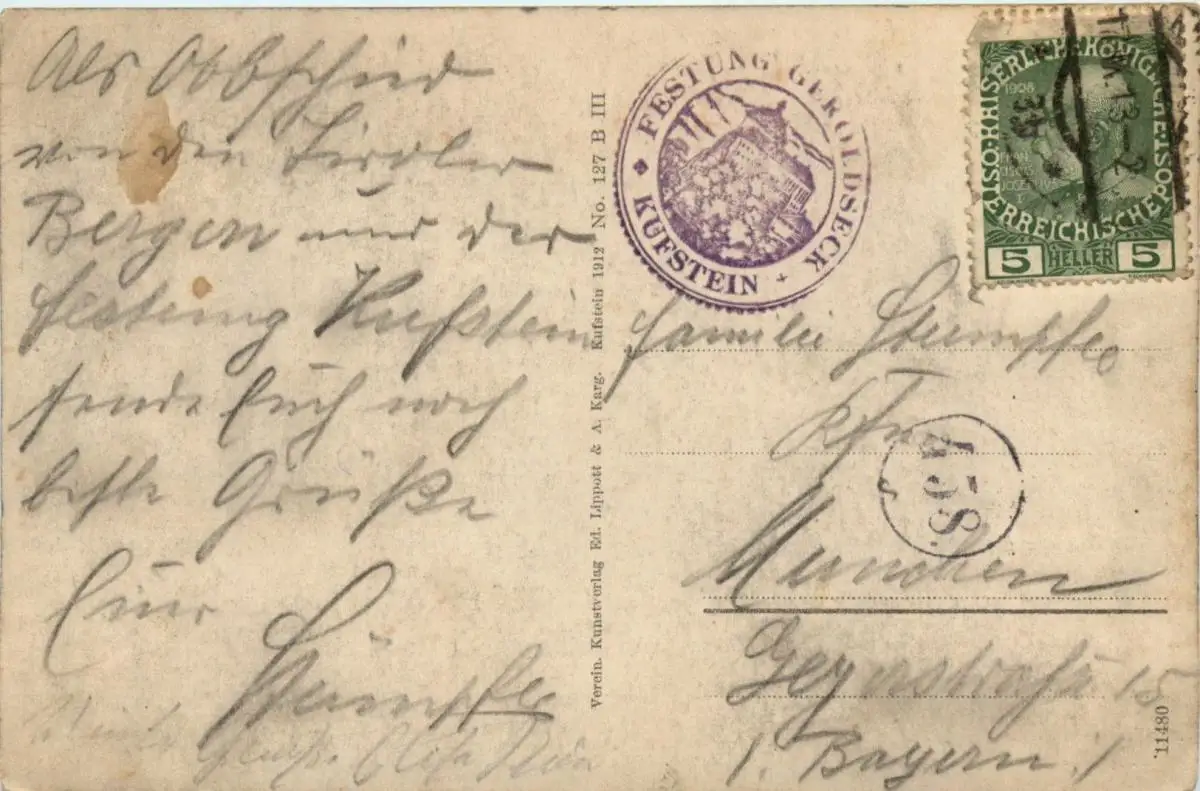 Als Abschied
von den Tiroler
Bergen und der
Festung Kufstein
sende Euch noch
beste Grüße
Euer
Stümpfle
Verein. Kunstverlag Ed. Lippott & A. Karg. Kufstein 1912 No. 127 B III
FESTUNG GEROLDSECK
KUFSTEIN
KAISERLICHE KÖNIGLICHE ÖSTERREICHISCHE POST
1908
5 HELLER 5
Familie Stümpfle
München
458
(Bayern)
11480